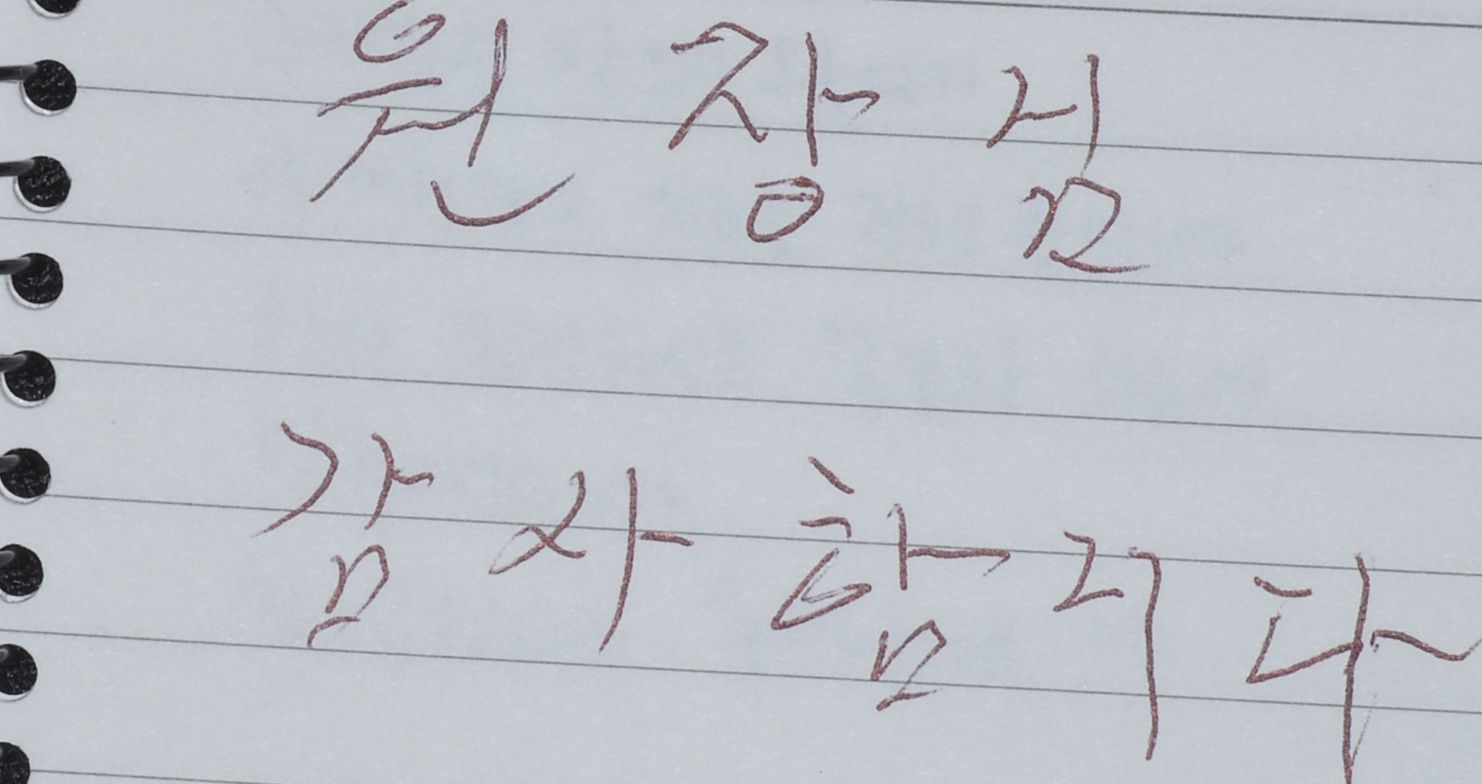 원장님
감사합니다